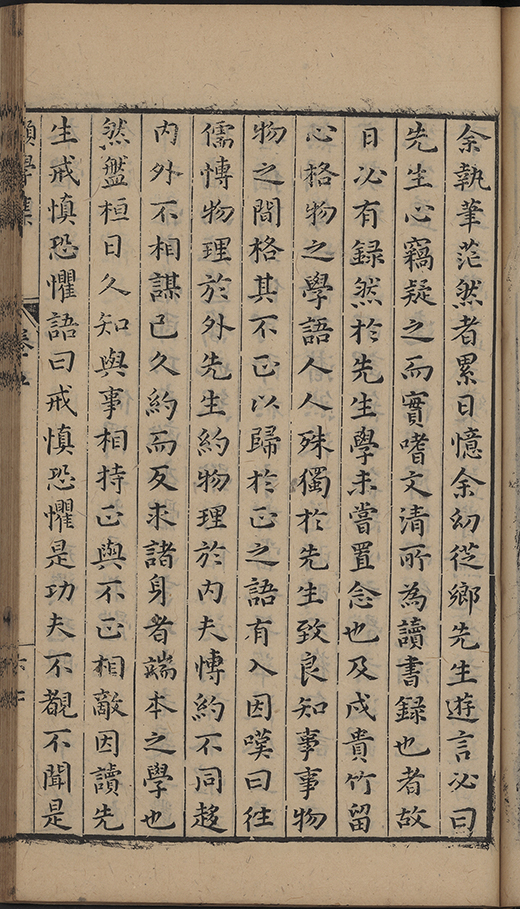 余執筆茫然者累日憶余幼從鄉先生遊言必曰
先生心竊疑之而實嗜文清所為讀書録也者故
日必有録然於先生學未嘗置念也及戍貴竹留
心格物之學語人人殊獨於先生致良知事事物
物之間格其不正以歸於正之語有入因嘆曰往
儒慱物理於外先生約物理於内夫慱約不同趍
内外不相謀已久約而反求諸身者端本之學也
然盤桓日久知與事相持正與不正相敵因讀先
生戒慎恐懼語曰戒慎恐懼是功夫不覩不聞是
願學集 卷五